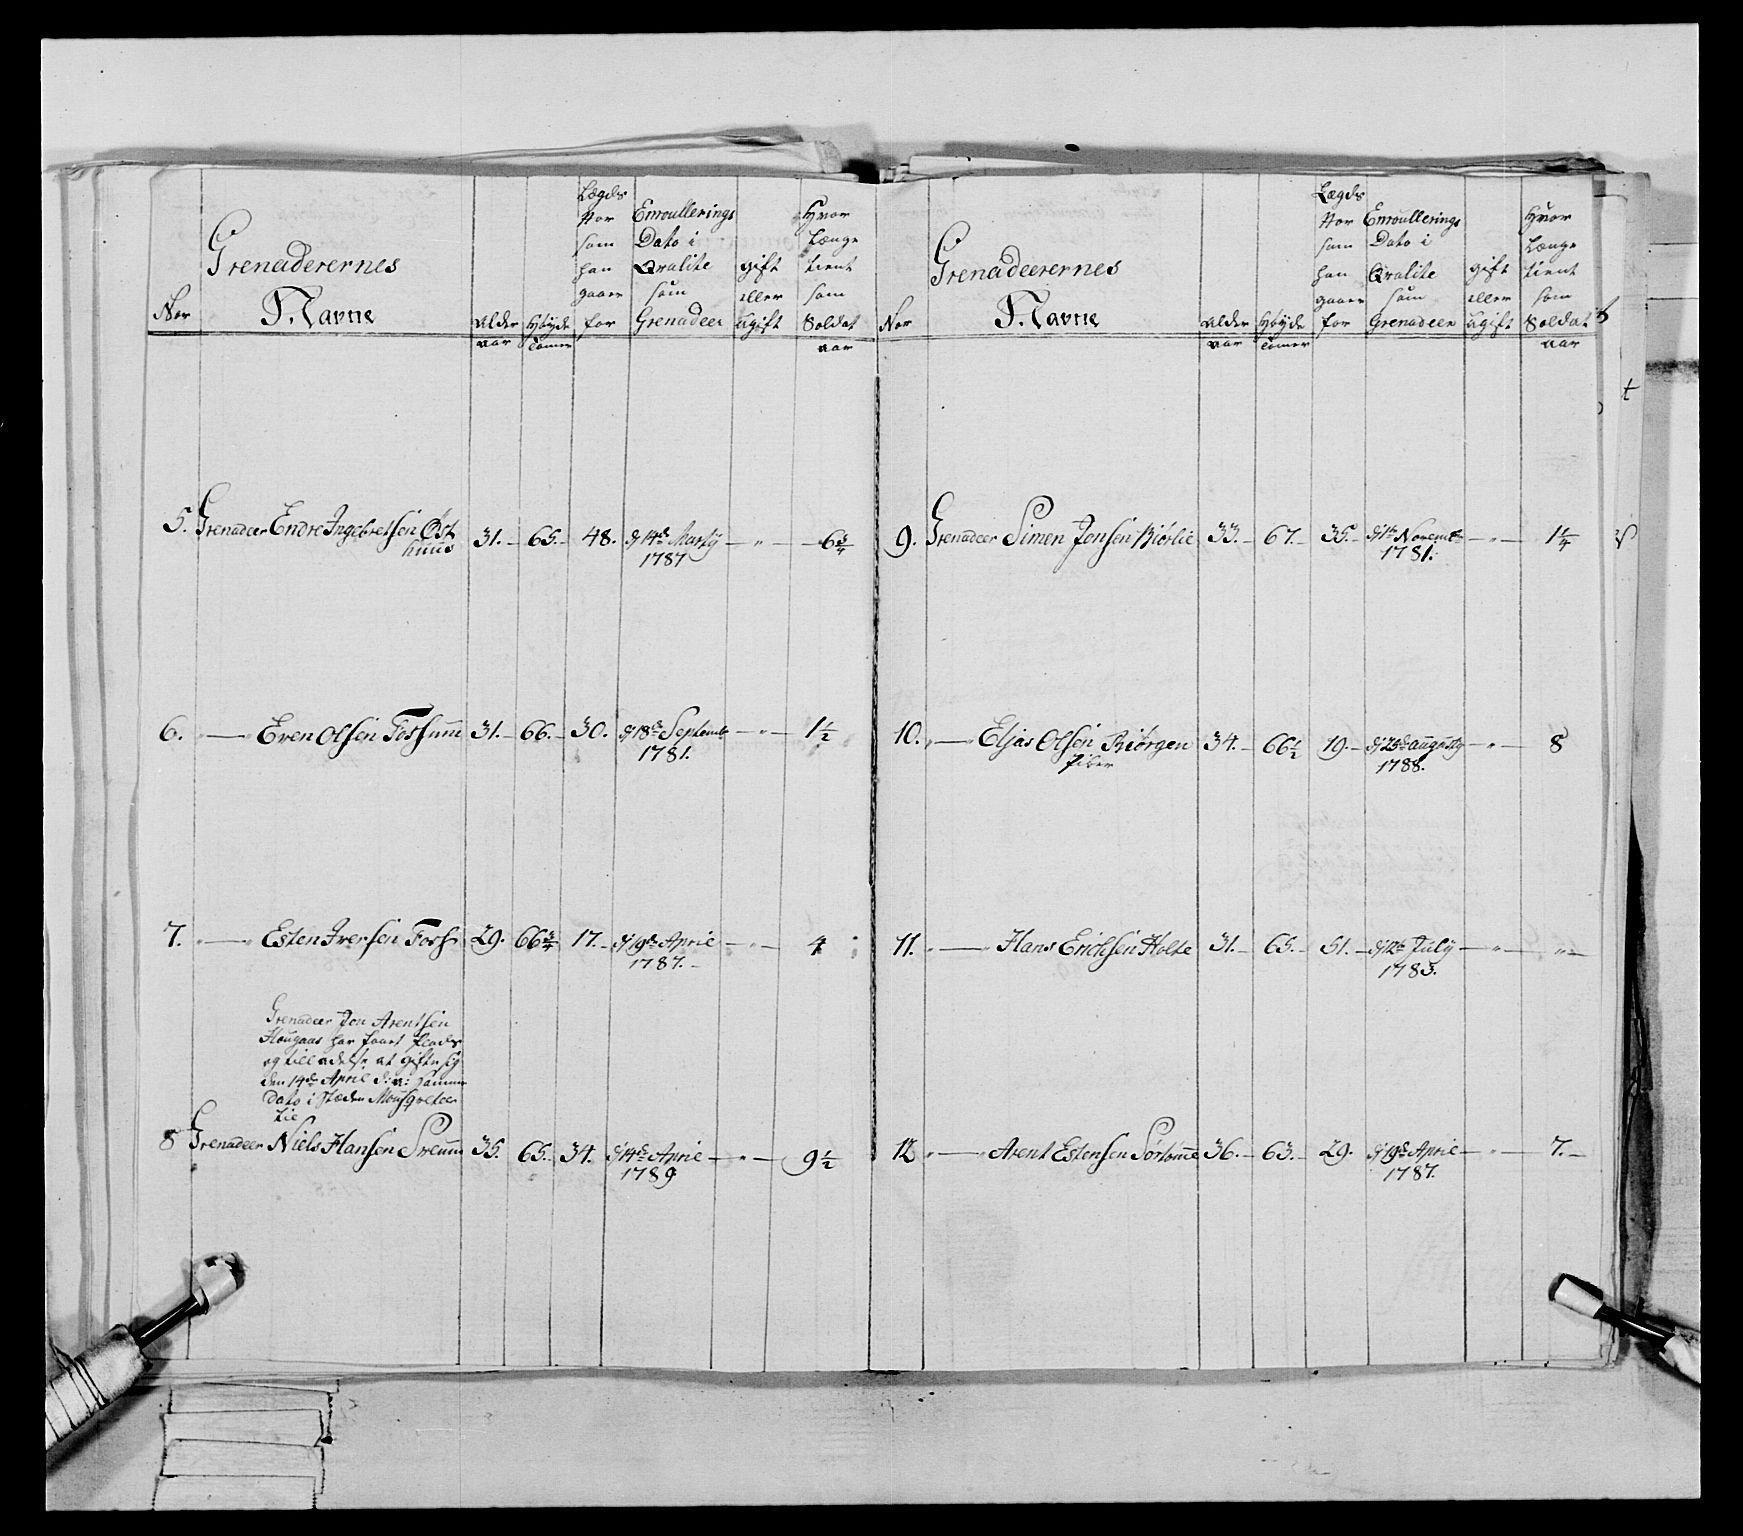 Nor
Grenaderernes
Navne
Alder
aar
Höyde
Tomer
Lægds
Nor
som
han
gaaer
for
Enroullerings
Dato i
Qvalite
som
Grenadeer
gift
eller
ugift
Hvor
Længe
tient
som
Soldat
aar
5. Grenadeer Endre Ingebretsen Øst 31. 65. 48. d 14de Marty — " — 6 3/4
huus 1787
6. " — " Even Olsen Fossum 31. 66. 30. d 18de Septemb — " — 1 1/2
1781.
7. " — " Esten Iversen Foss 29. 66 3/4 17. d 19de April — " — 4
1787.
Grenadeer Jon Arentsen
Hougaas har faaet
og tilladelse at gifte sig
den 14de April d: a: samme
Dato i stæden Mousqveteer
8 Grenadeer Niels Hansen Sreum 35. 65. 34. d 14de April — " — 9 1/2
1789
Nor
Grenadeerernes
Navne
Alder
aar
Höyde
Tomer
Lægds
Nor
som
han
gaaer
for
Enroullerings
Dato i
Qvalite
som
Grenadeer
gift
eller
Ugift
Hvor
Længe
tient
som
Soldat
aar
9. Grenadeer Simen Jonsen Biørlie 33. 67. 35. d 1te Novemb — " — 1 1/4
1781.
10. " — " Eljas Olsen Biørgen 34. 66 1/2 19. d 23de augusty — " — 8
Piber 1788.
11. " — " Hans Erichsen Holte 31. 65. 51. d 12te July — " — "
1783.
12 " — " Arent Estensen Sørtømme 36. 63. 29. d 19de April — " — 7.
1787.